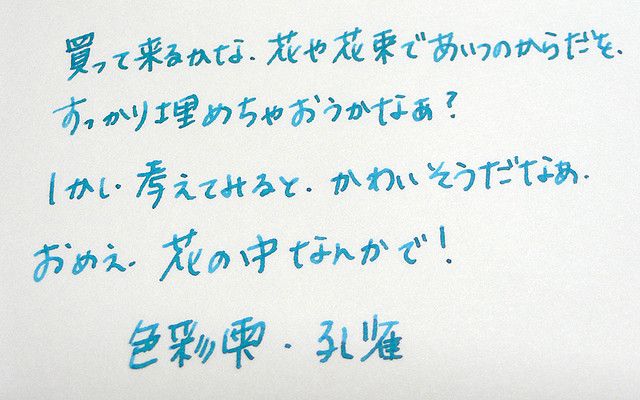 買って来るかな.花や花束であいつのからだを.
すっかり埋めちゃおうかなぁ?
しかし.考えてみると.かわいそうだなあ.
おめえ.花の中なんかで!
色彩雫.孔雀